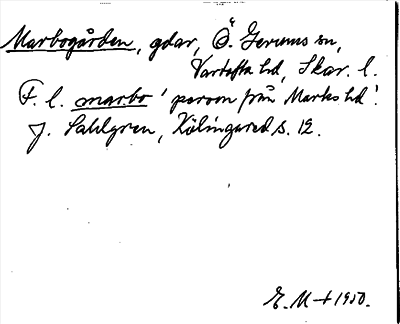 Marbogården, gdar, Ö. Gerums sn,
Vartofta hd, Skar. l.
F. l. marbo 'person från Marks hd'.
J. Sahlgren, Kölingared s. 12.
E. M-t 1950.